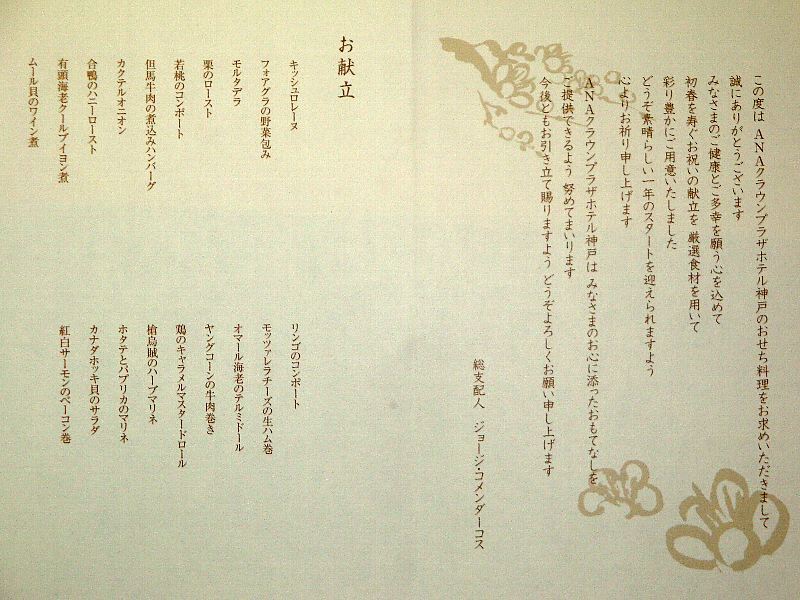 この度は ANAクラウンプラザホテル神戸のおせち料理をお求めいただきまして
誠にありがとうございます
みなさまのご健康とご多幸を願う心を込めて
初春を寿ぐお祝いの献立を 厳選食材を用いて
彩り豊かにご用意いたしました
どうぞ素晴らしい一年のスタートを迎えられますよう
心よりお祈り申し上げます
ANAクラウンプラザホテル神戸は みなさまのお心に添ったおもてなしを
ご提供できるよう 努めてまいります
今後ともお引き立て賜りますよう どうぞよろしくお願い申し上げます
総支配人 ジョージ・コメンダーコス
お献立
キッシュロレーヌ
フォアグラの野菜包み
モルタデラ
栗のロースト
若桃のコンポート
但馬牛肉の煮込みハンバーグ
カクテルオニオン
合鴨のハニーロースト
有頭海老クールブイヨン煮
ムール貝のワイン煮
リンゴのコンポート
モッツァレラチーズの生ハム巻
オマール海老のテルミドール
ヤングコーンの牛肉巻き
鶏のキャラメルマスタードロール
槍烏賊のハーブマリネ
ホタテとパプリカのマリネ
カナダホッキ貝のサラダ
紅白サーモンのベーコン巻